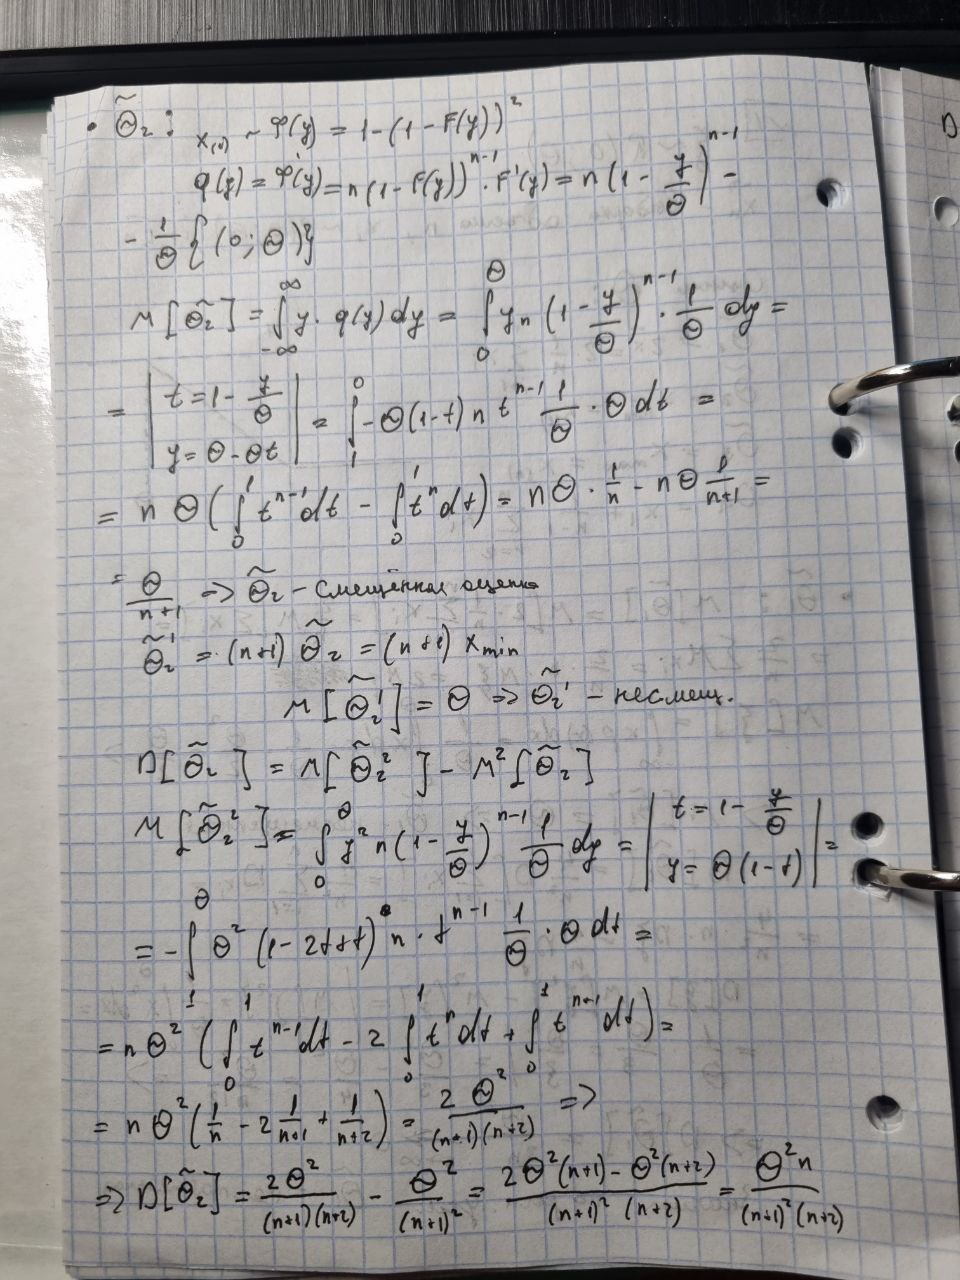 • Θ̃₂: x₍₁₎ ~ Ψ(y) = 1-(1-F(y))²
φ(y) = Ψ'(y) = n(1-F(y))ⁿ⁻¹ · F'(y) = n(1 - y/Θ)ⁿ⁻¹ -
- 1/Θ {(0; Θ)}
M[Θ̃₂] = ∫_{-∞}^{∞} y · φ(y) dy = ∫_0^Θ y n (1 - y/Θ)ⁿ⁻¹ · 1/Θ dy =
= | t = 1 - y/Θ ; y = Θ - Θt | = ∫_1^0 -Θ(1-t) n tⁿ⁻¹ 1/Θ · Θ dt =
= n Θ (∫_0^1 tⁿ⁻¹ dt - ∫_0^1 tⁿ dt) = nΘ · 1/n - nΘ 1/(n+1) =
= Θ/(n+1) => Θ̃₂ - смещённая оценка
Θ̃₂' = (n+1) Θ̃₂ = (n+1) x_min
M[Θ̃₂'] = Θ => Θ̃₂' - несмещ.
D[Θ̃₂] = M[Θ̃₂²] - M²[Θ̃₂]
M[Θ̃₂²] = ∫_0^Θ y² n(1 - y/Θ)ⁿ⁻¹ 1/Θ dy = | t = 1 - y/Θ ; y = Θ(1-t) | =
= -∫_1^Θ Θ² (1-2t+t) n · tⁿ⁻¹ 1/Θ · Θ dt =
= nΘ² (∫_0^1 tⁿ⁻¹ dt - 2 ∫_0^1 tⁿ dt + ∫_0^1 tⁿ⁺¹ dt) =
= nΘ² (1/n - 2 1/(n+1) + 1/(n+2)) = 2Θ²/((n+1)(n+2)) =>
=> D[Θ̃₂] = 2Θ²/((n+1)(n+2)) - Θ²/(n+1)² = (2Θ²(n+1) - Θ²(n+2))/((n+1)²(n+2)) = Θ²n/((n+1)²(n+2))
D